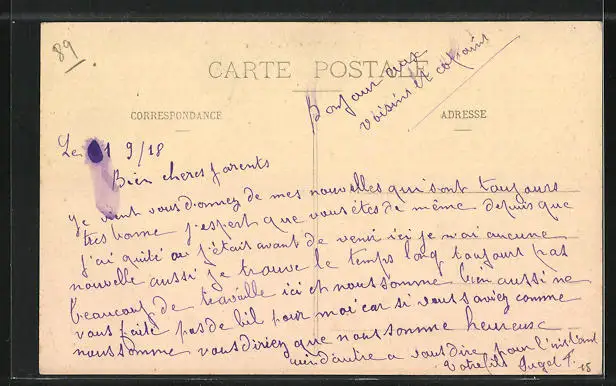 89
CARTE POSTALE
Bonjour aux
voisins et copains
CORRESPONDANCE
ADRESSE
Le 1 9/18
Bien cheres parents
Je vient vous donnez de mes nouvelles qui sont toujours
tres bonne j'espert que vous êtes de même depuis que
j'ai quité ou j'était avant de venir ici je n'ai aucune
nouvelle aussi je trouve le temps long toujours pas
beaucoup de travaille ici et nous somme bien aussi ne
vous faite pas de bil pour moi car si vous saviez comme
nous somme vous diriez que nous somme heureux
rien d'autre a vous dire pour l'instant
Votre fils